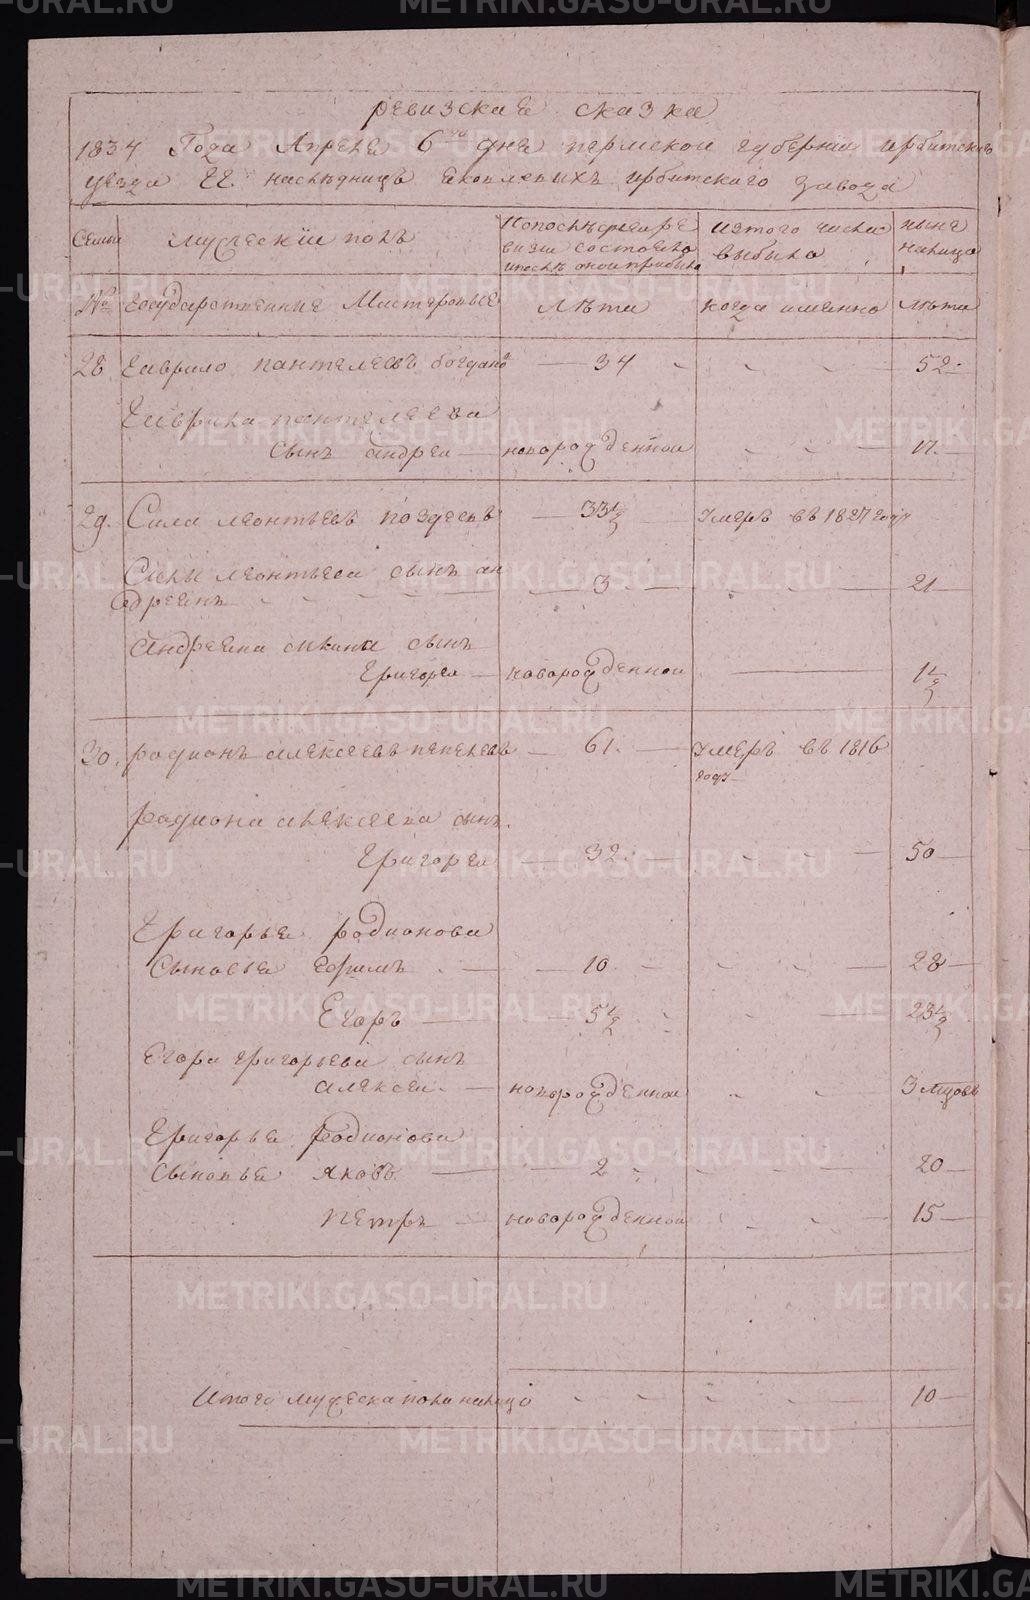 ревизская сказка
1834 Года Апреля 6го дня пермской губернии ирбитскаго
уезда ГГ наследницъ Яковлевыхъ ирбитского завода
Семьи
мужеский полъ
По последней ре
визии состояло
и после оной прибыло
Из того числа
выбыло
ныне
налицо
№
Государственные Мастеровые
Лѣта
когда именно
лѣта
28 Гаврило пантелеевъ богдано — 34 — 52
Гаврила пантелеева
сынъ андрей — новорожденной — 17
29. Сила леонтьевъ поздеевъ — 33 1/2 — Умеръ въ 1827 году
Силы леонтьева сынъ ан
дреянъ — 3 — 21
андреяна силина сынъ
Григорей — новорожденной — 1 1/2
30. родионъ алексеевъ пепелевъ — 61 — Умеръ въ 1816
году
родиона алексеева сынъ
Григорей — 32 — 50
Григорья родионова
сыновья ефимъ — 10 — 28
Егоръ — 5 1/2 — 23 1/2
Егора григорьева сынъ
алексей — новорожденной — 3 мцовъ
Григорья родионова
сыновья яковъ — 2 — 20
петръ — новорожденной — 15
Итого мужеска пола налицо — 10
METRIKI.GASO-URAL.RU